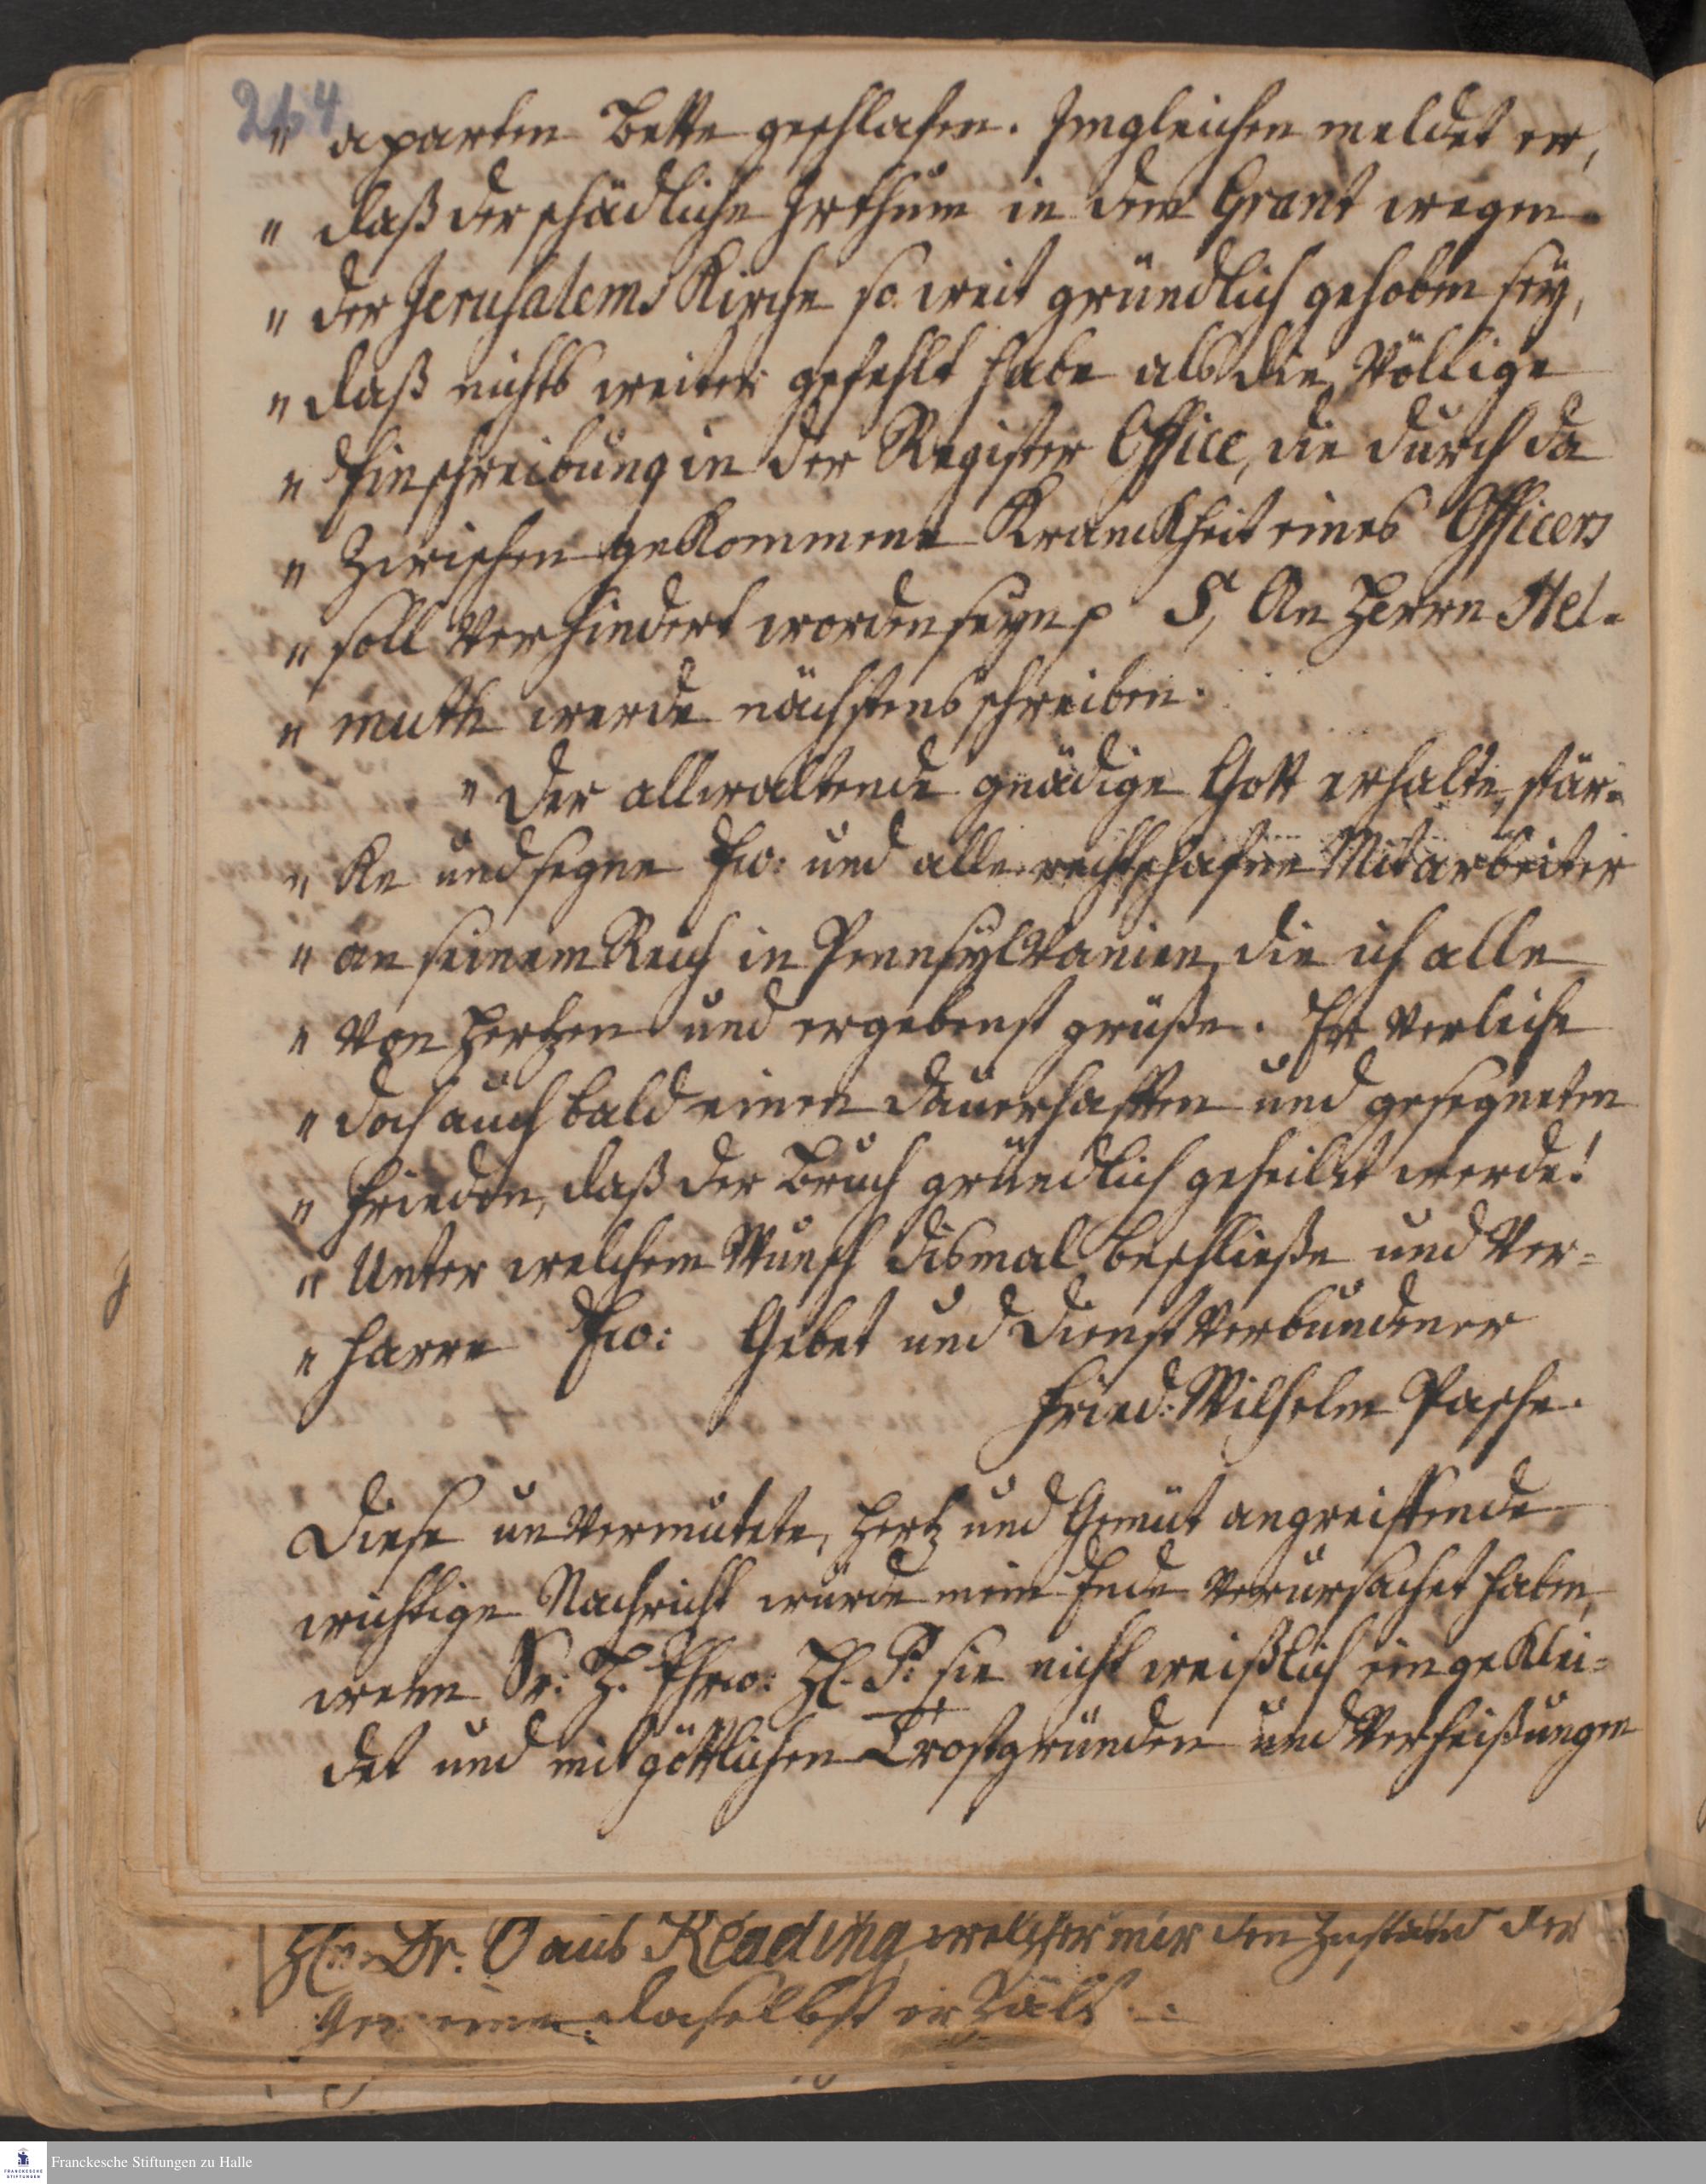 264
" aparten Bette geschlafen. Imgleichen meldet er,
" daß der schädliche Irthum in dem Grant wegen
" der Jerusalems Kirche so weit gründlich gehoben sey,
" daß nichts weiter gefehlt habe als die völlige
" Einschreibung in der Register Office, die durch da
" zwischen gekommene Kranckheit eines Officers
" soll verhindert worden seyn p 5, An Herrn Hel-
" muth werde nächstens schreiben.
" Der allwaltende gnädige Gott erhalte, stär-
" ke und segne Ew: und alle rechtschafne Mitarbeiter
" an seinem Reich in Pennsylvanien, die ich alle
" von Hertzen und ergebenst grüße. Er verleihe
" doch auch bald einen dauerhaften und gesegneten
" Frieden, daß der Bruch gründlich geheilet werde!
" Unter welchem Wunsch dismal beschließe und ver-
" harre Ew: Gebet und Dienst verbundener
Fried: Wilhelm Pasche.
Diese unvermutete, Hertz und Gemüt angreiffende
wichtige Nachricht würde mein Ende verursachet haben,
wenn Sr: H. Ehrw: H. P: sie nicht weißlich eingeklei-
det und mit göttlichen Trostgründen und Verheißungen
H. Dr. O aus Reading, welcher mir den Zustand der
Gemeine daselbst erzält
Franckesche Stiftungen zu Halle